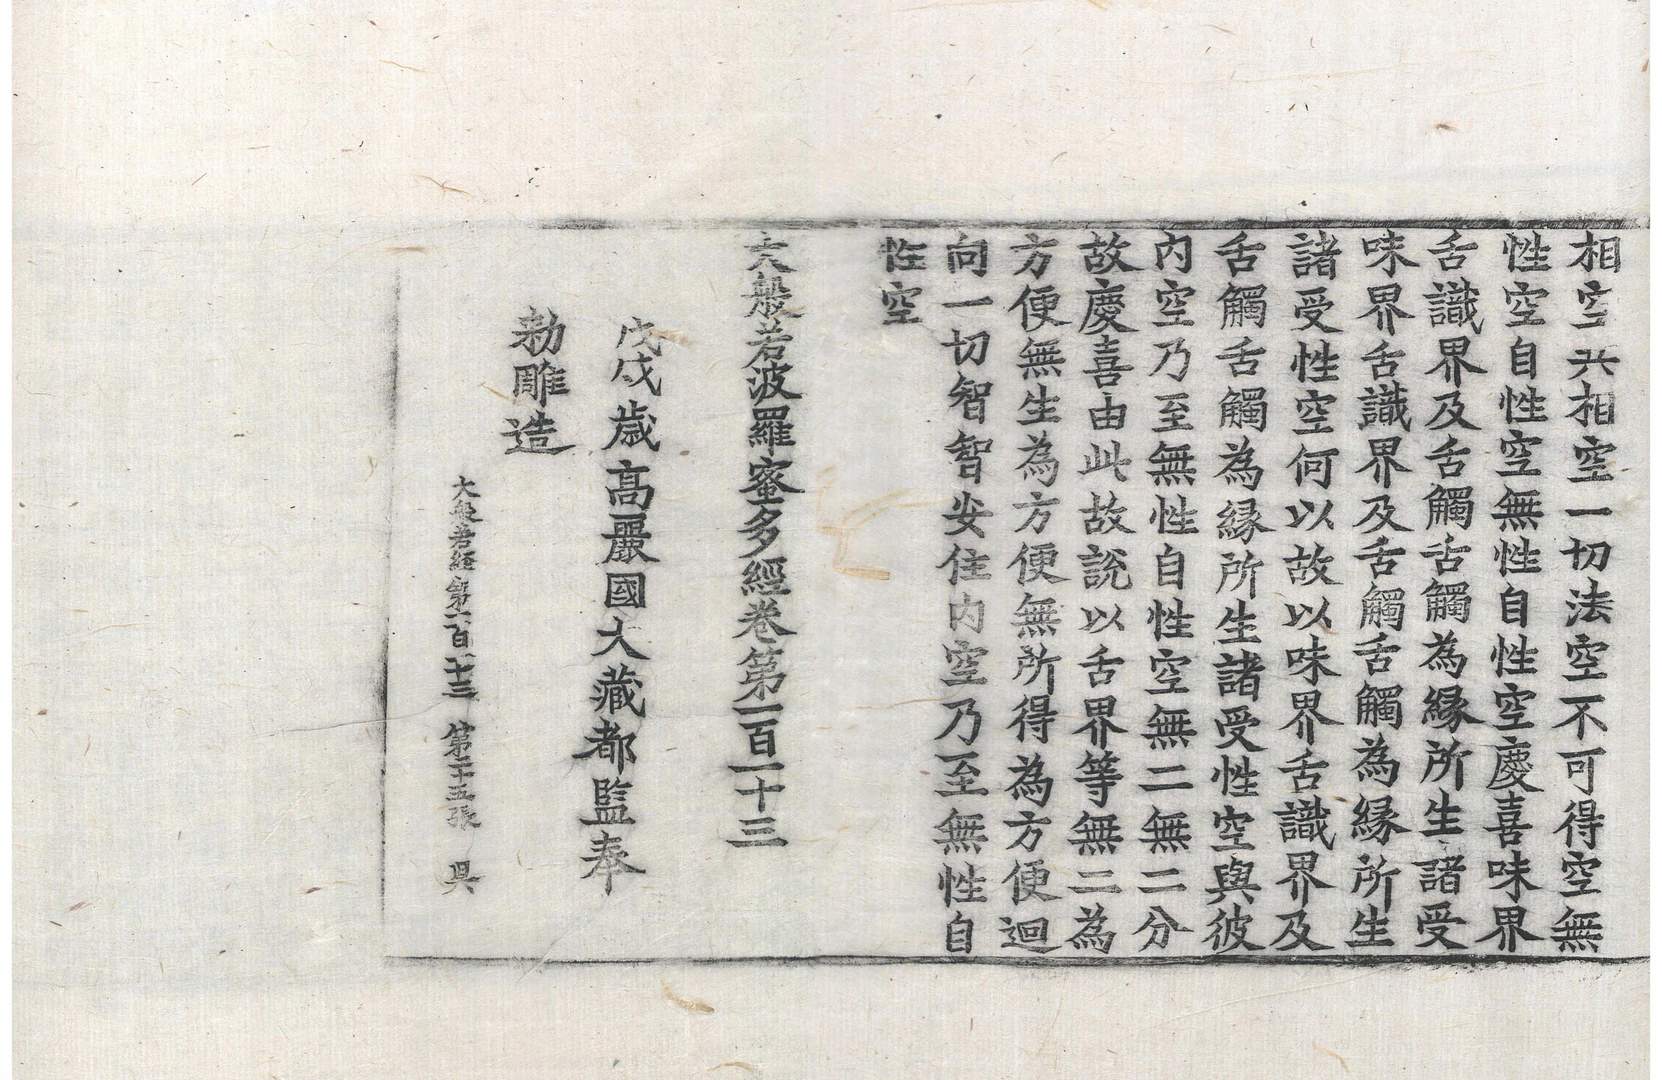 相空共相空一切法空不可得空無
性空自性空無性自性空慶喜味界
舌識界及舌觸舌觸為緣所生諸受
味界舌識界及舌觸舌觸為緣所生
諸受性空何以故以味界舌識界及
舌觸舌觸為緣所生諸受性空與彼
內空乃至無性自性空無二無二分
故慶喜由此故說以舌界等無二為
方便無生為方便無所得為方便迴
向一切智智安住內空乃至無性自
性空
大般若波羅蜜多經卷第一百一十三
戊戌歲高麗國大藏都監奉
勅雕造
大般若經第一百一十三 第二十五張 具